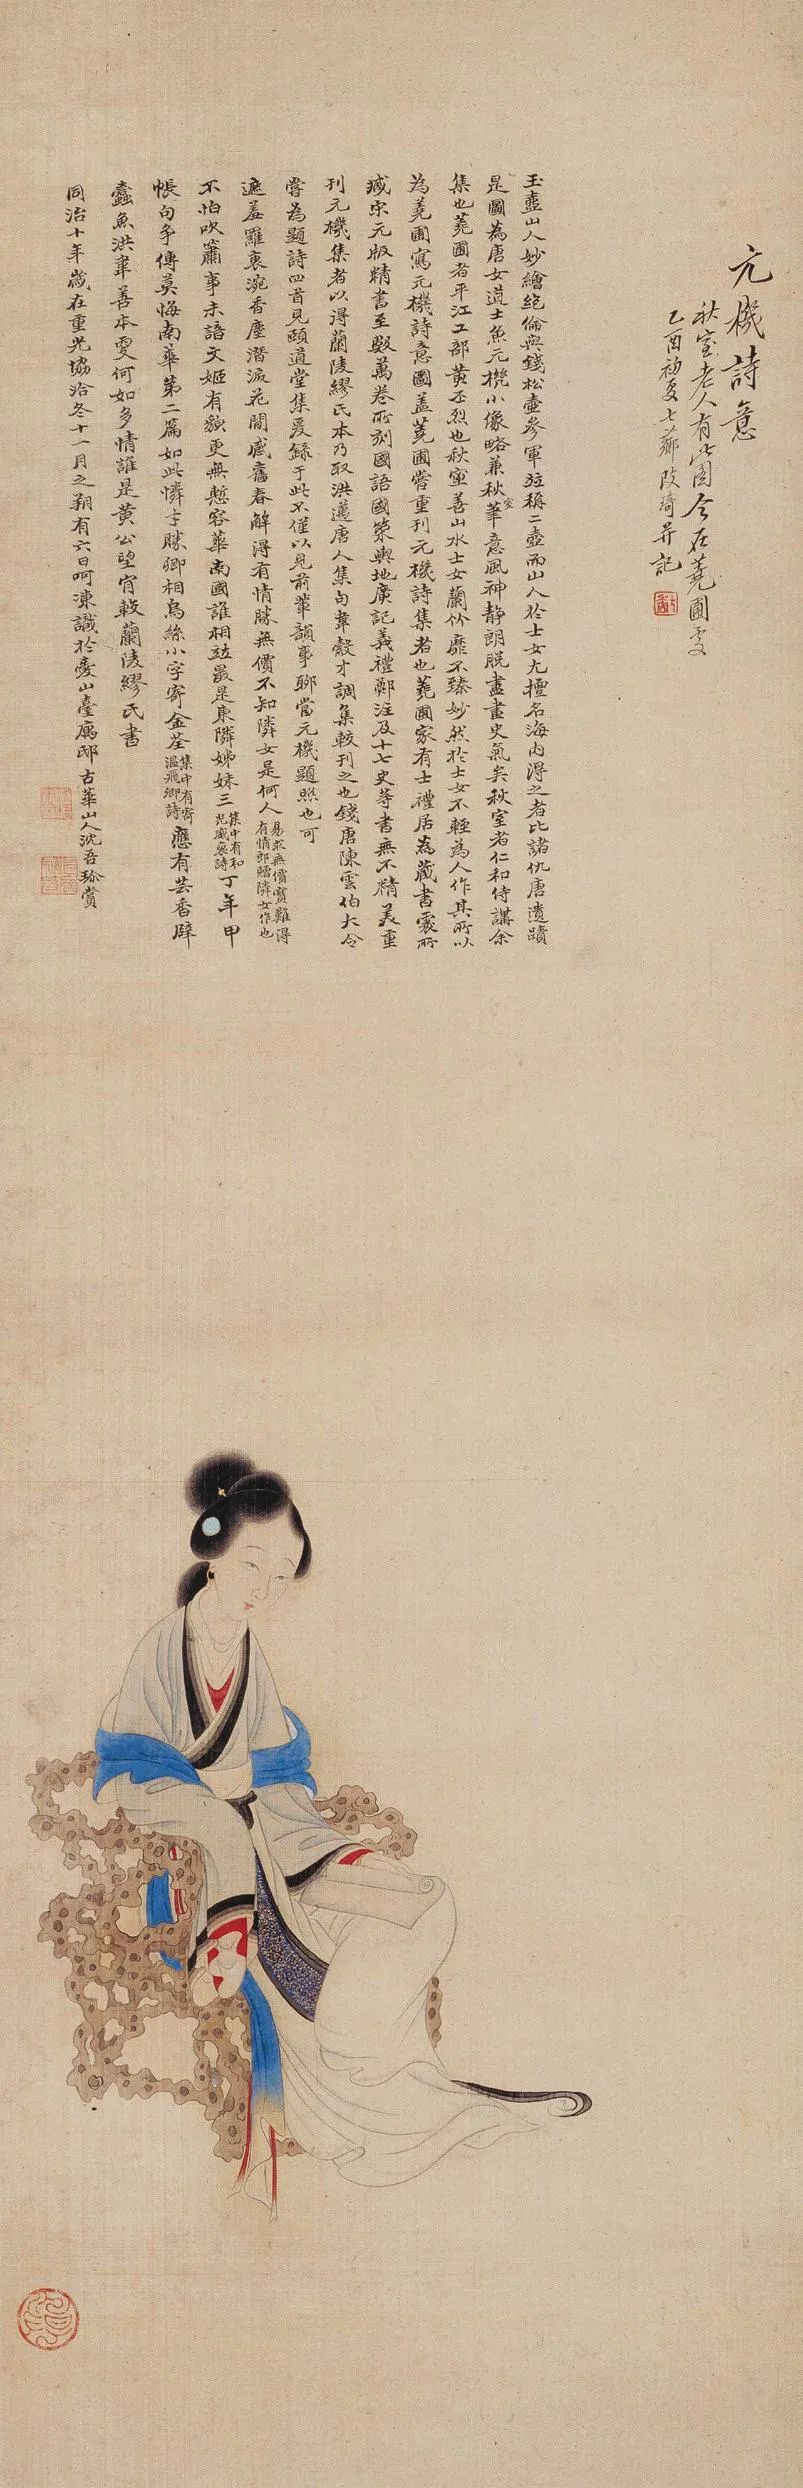 元機詩意
秋室老人有此圖今在蕘圃處
乙酉初夏七薌改琦并記
玉壺山人妙繪絕倫與錢松壺參軍竝稱二壺而山人於士女尤擅名海內得之者比諸仇唐遺蹟
是圖為唐女道士魚元機小像略兼秋室華意風神靜朗脫盡畫史氣矣秋室者仁和侍講余
集也蕘圃者平江工部黃丕烈也秋室善山水士女蘭竹靡不臻妙然於士女不輕為人作其所以
為蕘圃寫元機詩意圖蓋蕘圃嘗重刊元機詩集者也蕘圃家有士禮居為藏書處所
臧宋元版精書至數萬卷所刻國語國策輿地廣記義禮鄭注及十七史等書無不精美重
刊元機集者以得蘭陵繆氏本乃取洪邁唐人集句韋縠才調集較刊之也錢唐陳雲伯大令
嘗為題詩四首見頤道堂集爰錄于此不僅以見前輩韻事聊當元機題照也可
遮羞羅袖涴香塵潛淚花間感舊春解得有情勝無價不知隣女是何人易求無價寶難得有情郎贈隣女作也
不怕吹簫事未語文姬有貌更無慙容華南國誰相竝最是東隣姊妹三集中有和光威裒詩丁年甲
帳句爭傳莫悔南華第二篇如此憐才勝卿相烏絲小字寄金荃集中有寄溫飛卿詩應有芸香辟
蠹魚洪韋善本更何如多情誰是黃公望宵較蘭陵繆氏書
同治十年歲在重光協洽冬十一月之朔有六日呵凍識於夌山臺寓邸古華山人沈吾珍賞